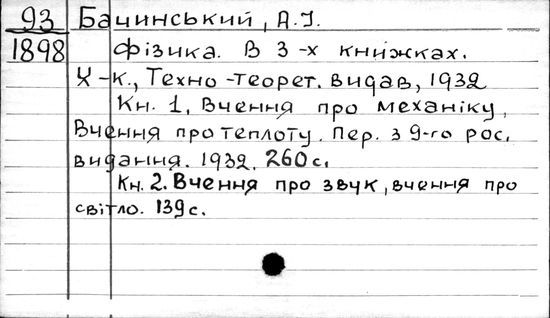 93 Бачинський, А.І.
1898 Фізика. В 3-х книжках.
Х-к., Техно-теорет. видав, 1932
Кн. 1, Вчення про механіку,
Вчення про теплоту. Пер. з 9-го рос.
видання. 1932. 260 с.
Кн. 2. Вчення про звук, вчення про
світло. 139 с.